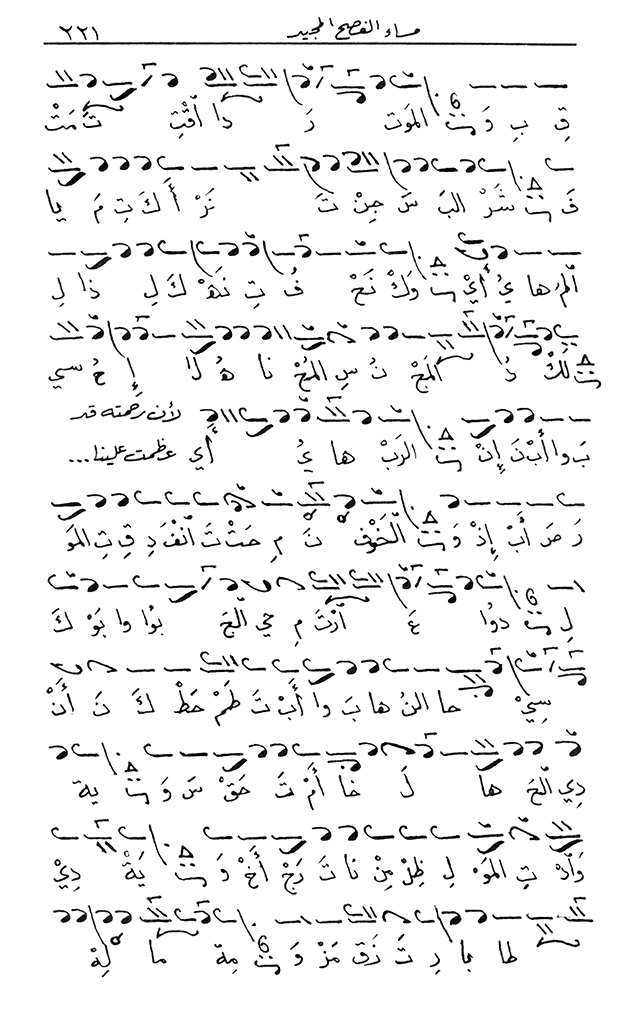 مساء الفصح المجيد ٢٢١
قِ بِ وَ المَوت رَ دا اقْتِ تَمَتْ
فَ شَرْ البَ سَ جِنْ تَ نَرْ أَ كَ تِ مَ يا
اَلْمُ ها يُ أَيْ وَكْ نَحْ فُ تِ نَهْ كَ لِ ذا لِ
لَكْ دُ المَجْ نُ سِ المُحْ نا هُ لا إِ حُ سي
لأن رحمته قد
بَ وا أَبْ نَ إِنْ الرَبْ ها يُ أَي عظمت علينا...
رَ صَ أَبْ إِذْ وَ الْخَوْفِ نَ مِ حَتْ تَ انْفَ دِ قِ تِ المَو
لِ دوُا عَ اَرْتَ مِ حي الْجَ بُوا وا بَوْ كَ
سِيْ حا النُ ها بَ وا أَبْ تَ طَمْ حَطْ كَ نَ أَنْ
دِي الْحَ ها لَ خا أَمْ تَ حَقْ سَ وَ ية
وَأَدْ تِ المَوْ لِ ظِلْ مِنْ نا تَ رَجْ أَخْ وَ يَةْ دِيْ
طا با رِ تَ زَقَ مَزْ وَ مِة ما لِةْ